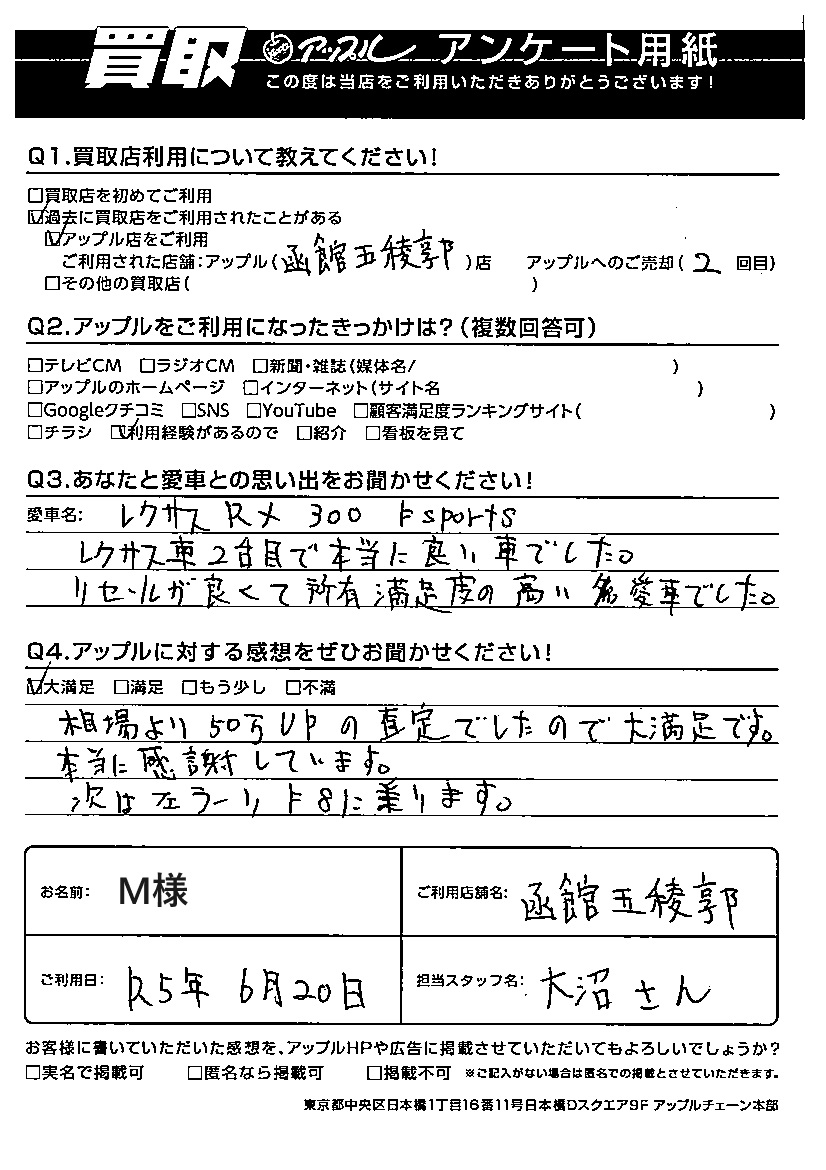 買取 アップル アンケート用紙
この度は当店をご利用いただきありがとうございます!
Q1.買取店利用について教えてください!
□買取店を初めてご利用
☑過去に買取店をご利用されたことがある
☑アップル店をご利用
ご利用された店舗:アップル(函館五稜郭)店 アップルへのご売却(2 回目)
□その他の買取店( )
Q2.アップルをご利用になったきっかけは?(複数回答可)
□テレビCM □ラジオCM □新聞・雑誌(媒体名/ )
□アップルのホームページ □インターネット(サイト名 )
□Googleクチコミ □SNS □YouTube □顧客満足度ランキングサイト( )
□チラシ ☑利用経験があるので □紹介 □看板を見て
Q3.あなたと愛車との思い出をお聞かせください!
愛車名: レクサス RX 300 Fsports
レクサス車2台目で本当に良い車でした。
リセールが良くて所有満足度の高い名愛車でした。
Q4.アップルに対する感想をぜひお聞かせください!
☑大満足 □満足 □もう少し □不満
相場より50万UPの査定でしたので大満足です。
本当に感謝しています。
次はフェラーリF8に乗ります。
お名前: M様 ご利用店舗名: 函館五稜郭
ご利用日: R5年 6月20日 担当スタッフ名: 大沼さん
お客様に書いていただいた感想を、アップルHPや広告に掲載させていただいてもよろしいでしょうか?
□実名で掲載可 □匿名なら掲載可 □掲載不可 ※ご記入がない場合は匿名での掲載とさせていただきます。
東京都中央区日本橋1丁目16番11号日本橋Dスクエア9F アップルチェーン本部